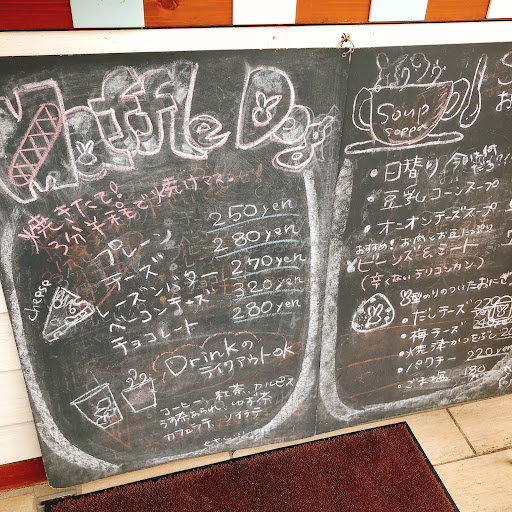 Waffle Dog
焼きたて!
3分半程で焼けマス
プレーン 250yen
チーズ 280yen
レーズンバター 270yen
ベーコンチーズ 320yen
チョコレート 280yen
cheese
Drinkの
テイクアウトok
コーヒー、紅茶、カルピス
うめ茶あられ、ゆず茶
カフェラテ、ソイラテ
Soup
soppa
・日替り
・豆乳コーンスープ
・オニオンチーズスープ
おすすめ! お肉とお豆たっぷり
・ビーンズ&ミート
(辛くないチリコンカン)
のりのついたおにぎ
・だしチーズ
・梅チーズ
・焼津かつおぶし
・パクチー 220yen
・ごま塩 180